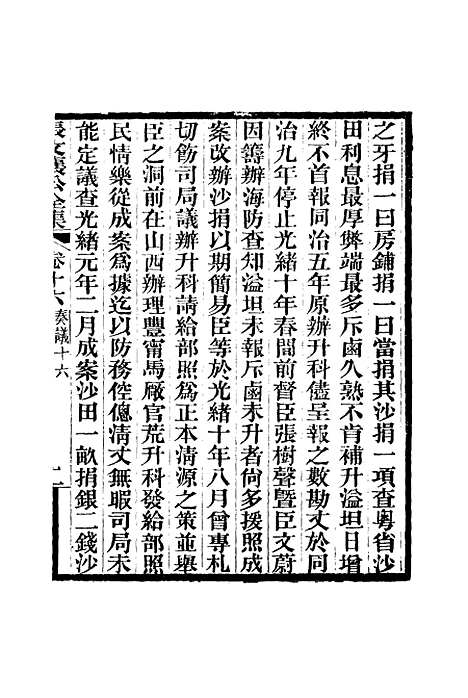 之牙捐一曰房鋪捐一曰當捐其沙捐一項查粵省沙
田利息最厚弊端最多斥鹵久熟不肯補升溢坦日增
終不首報同治五年原辦升科儘呈報之數勘丈於同
治九年停止光緒十年春間前督臣張樹聲暨臣文蔚
因籌辦海防查知溢坦未報斥鹵未升者尙多援照成
案改辦沙捐以期簡易臣等於光緒十年八月曾專札
切飭司局議辦升科請給部照爲正本清源之策並舉
臣之洞前在山西辦理豐甯馬厰官荒升科發給部照
民情樂從成案爲據迄以防務倥傯清丈無暇司局未
能定議查光緒元年二月成案沙田一畝捐銀二錢沙
張文襄公全集 卷十六 奏議十六